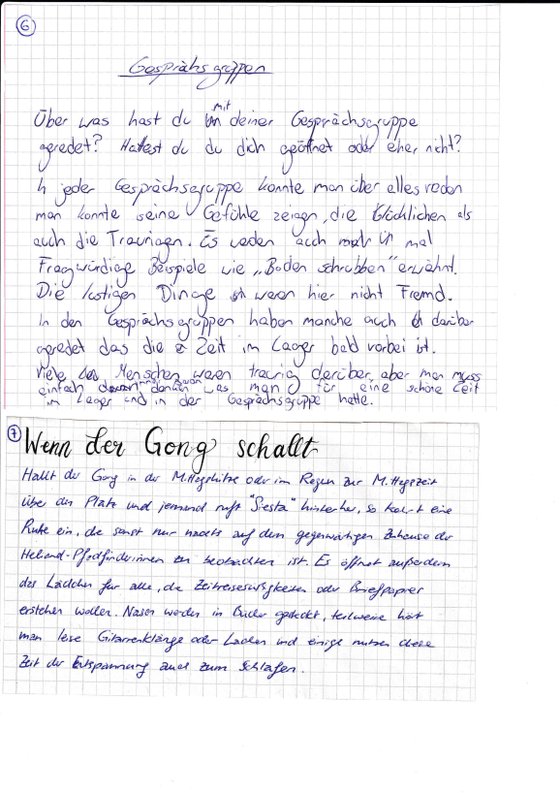 6
Gesprächsgruppen
Über was hast du mit deiner Gesprächsgruppe
geredet? Hattest du du dich geöffnet oder eher nicht?
In jeder Gesprächsgruppe konnte man über alles reden
man konnte seine Gefühle zeigen, die Glücklichen als
auch die Traurigen. Es werden auch mal
Fragwürdige Beispiele wie „Boden schrubben" erwähnt.
Die lustigen Dinge waren hier nicht Fremd.
In den Gesprächsgruppen haben manche auch darüber
geredet das die Zeit im Lager bald vorbei ist.
Viele Menschen waren traurig darüber, aber man muss
einfach daran denken was man für eine schöne Zeit
im Lager und in der Gesprächsgruppe hatte.
7
Wenn der Gong schallt
Hallt der Gong in der Mittagshitze oder im Regen zur Mittagszeit
über den Platz und jemand ruft "Siesta" hinterher, so kehrt eine
Ruhe ein, die sonst nur nachts auf dem gegenwärtigen Zuhause der
Heliand-Pfadfinder:innen zu beobachten ist. Es öffnet außerdem
das Lädchen für alle, die Zeitreisesüßigkeiten oder Briefpapier
erstehen wollen. Nasen werden in Bücher gesteckt, teilweise hört
man leise Gitarrenklänge oder Lachen und einige nutzen diese
Zeit der Entspannung auch zum Schlafen.